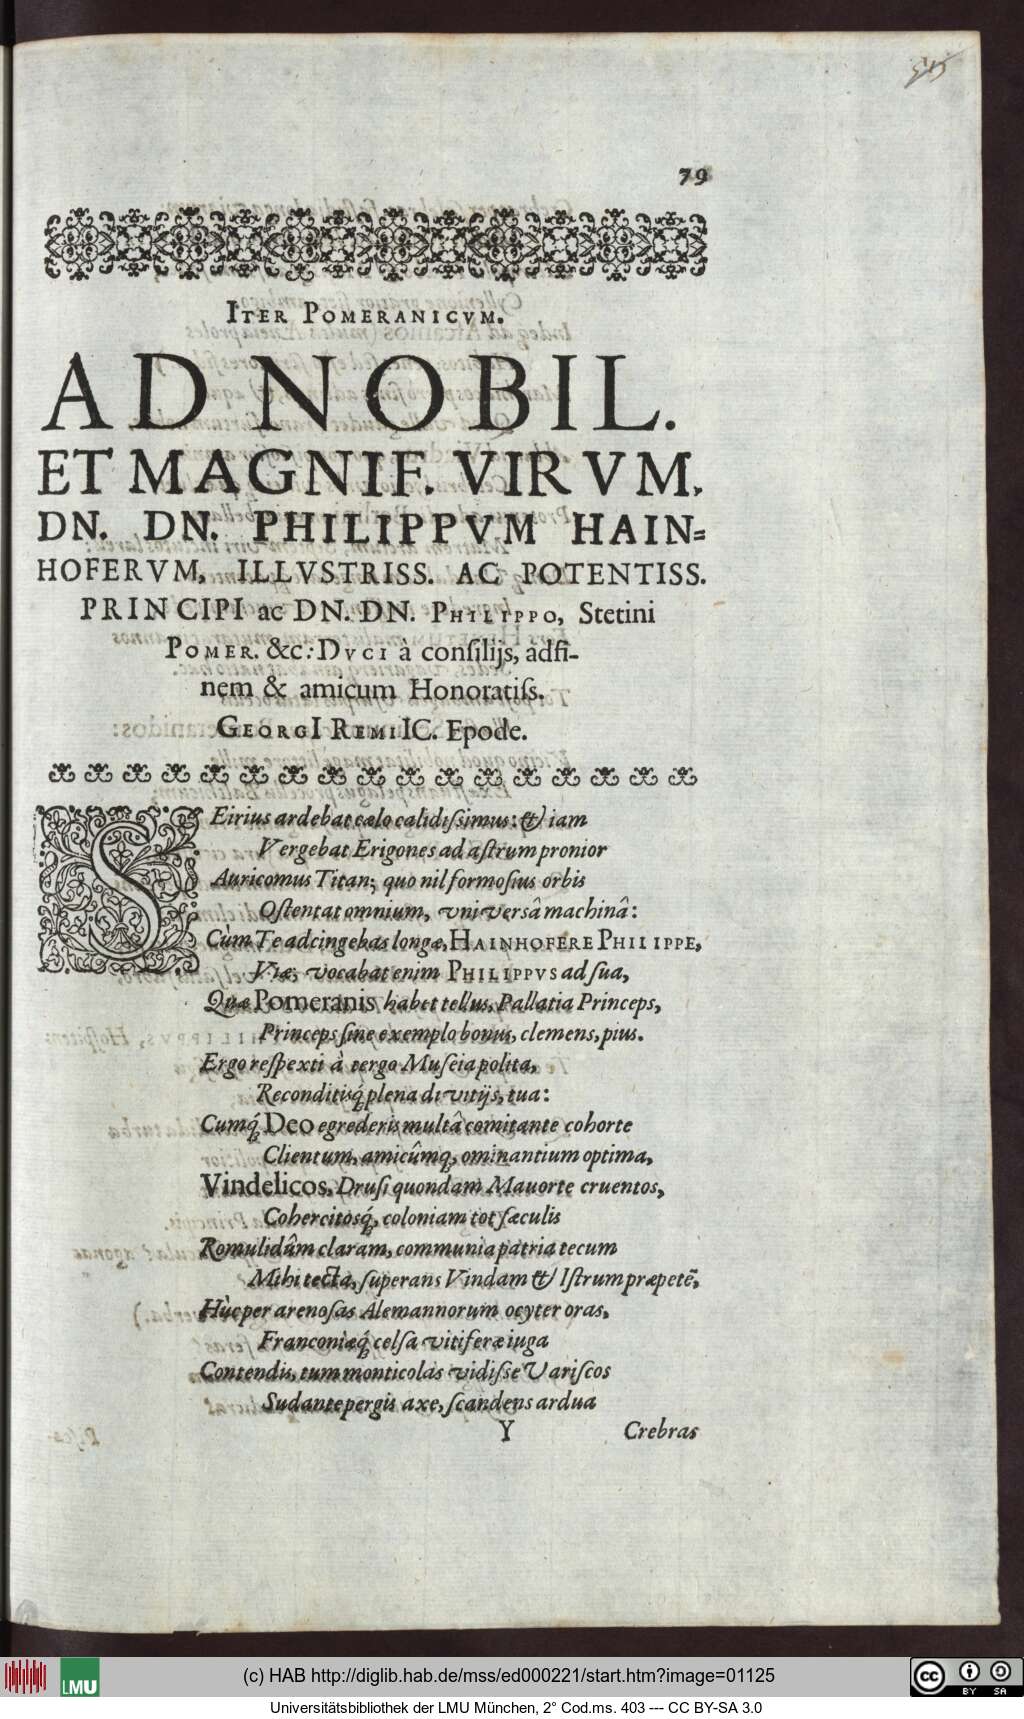 79
ITER POMERANICVM.
AD NOBIL.
ET MAGNIF. VIRVM,
DN. DN. PHILIPPVM HAIN=
HOFERVM, ILLVSTRISS. AC POTENTISS.
PRINCIPI ac DN. DN. PHILIPPO, Stetini
POMER. &c: DVCI à conſilijs, adfi-
nem & amicum Honoratiſs.
GEORGI REMI IC. Epode.
SEirius ardebat cælo calidiſsimus: & iam
Vergebat Erigones ad aſtrum pronior
Auricomus Titan; quo nil formoſius orbis
Oſtentat omnium, vniversâ machinâ:
Cùm Te adcingebas longæ, HAINHOFERE PHILIPPE,
Viæ, vocabat enim PHILIPPVS ad ſua,
Quæ Pomeranis habet tellus, Pallatia Princeps,
Princeps ſine exemplo bonus, clemens, pius.
Ergo reſpexti à tergo Muſeia polita,
Reconditisq́ plena divitijs, tua:
Cumq́ Deo egrederis multâ comitante cohorte
Clientum, amicûmq, ominantium optima,
Vindelicos, Druſi quondam Mavorte cruentos,
Cohercitosq́, coloniam tot ſæculis
Romulidûm claram, communia patria tecum
Mihi tecta, ſuperans Vindam & Iſtrum præpetē,
Hùc per arenoſas Alemannorum ocyter oras,
Franconiæq́ celſa vitiferæ iuga
Contendis, tum monticolas vidiſse Variſcos
Sudante pergis axe, ſcandens ardua
Y Crebras
LMU
(c) HAB http://diglib.hab.de/mss/ed000221/start.htm?image=01125
cc BY SA
Universitätsbibliothek der LMU München, 2° Cod.ms. 403 --- CC BY-SA 3.0